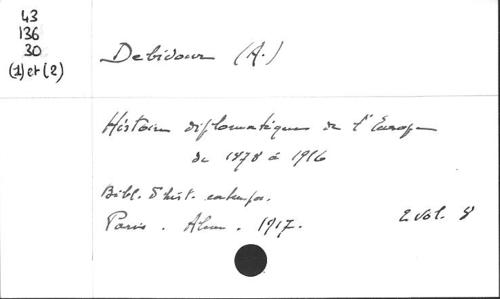 43
136
30
(1) et (2)
Debidour (A.)
Histoire diplomatique de l'Europe
de 1878 à 1916
Bibl. d'hist. contemp.
Paris. Alcan. 1917. 2 vol. 8